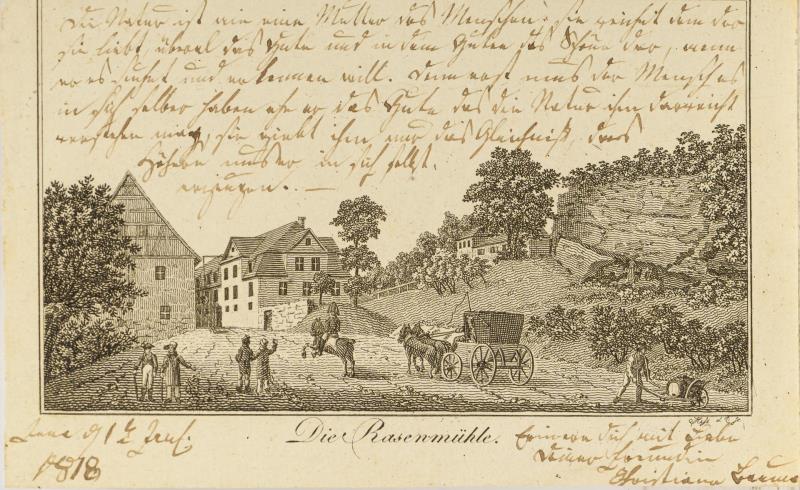 Die Natur ist wie eine Mutter des Menschen; sie reichet dem der
sie liebt, überal das Gute und in dem Guten das Schöne dar, wenn
er es suchet und erkennen will. Denn erst mus der Mensch es
in sich selber haben ehe er das Gute das die Natur ihm darreicht
verstehen mag, sie giebt ihm nur das Gleichniß, das
Höhere muss er in sich selbst
erzeugen. —
Die Rasenmühle.
Jena d 1 Jan.
1818
Erinnere dich mit Liebe
deiner Freundin
Christiane